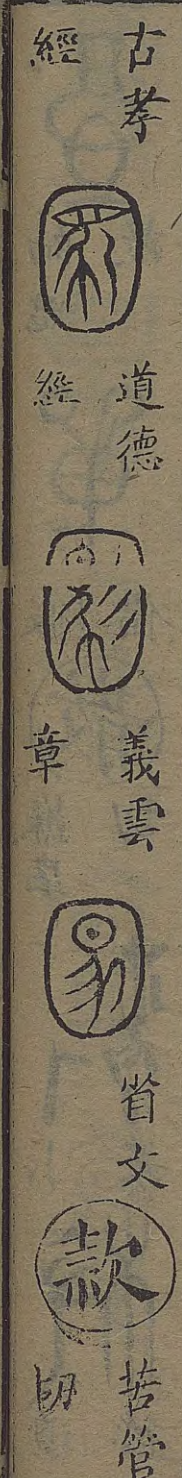 古孝
經
道德
經
義雲
章
省文
款
苦管
切